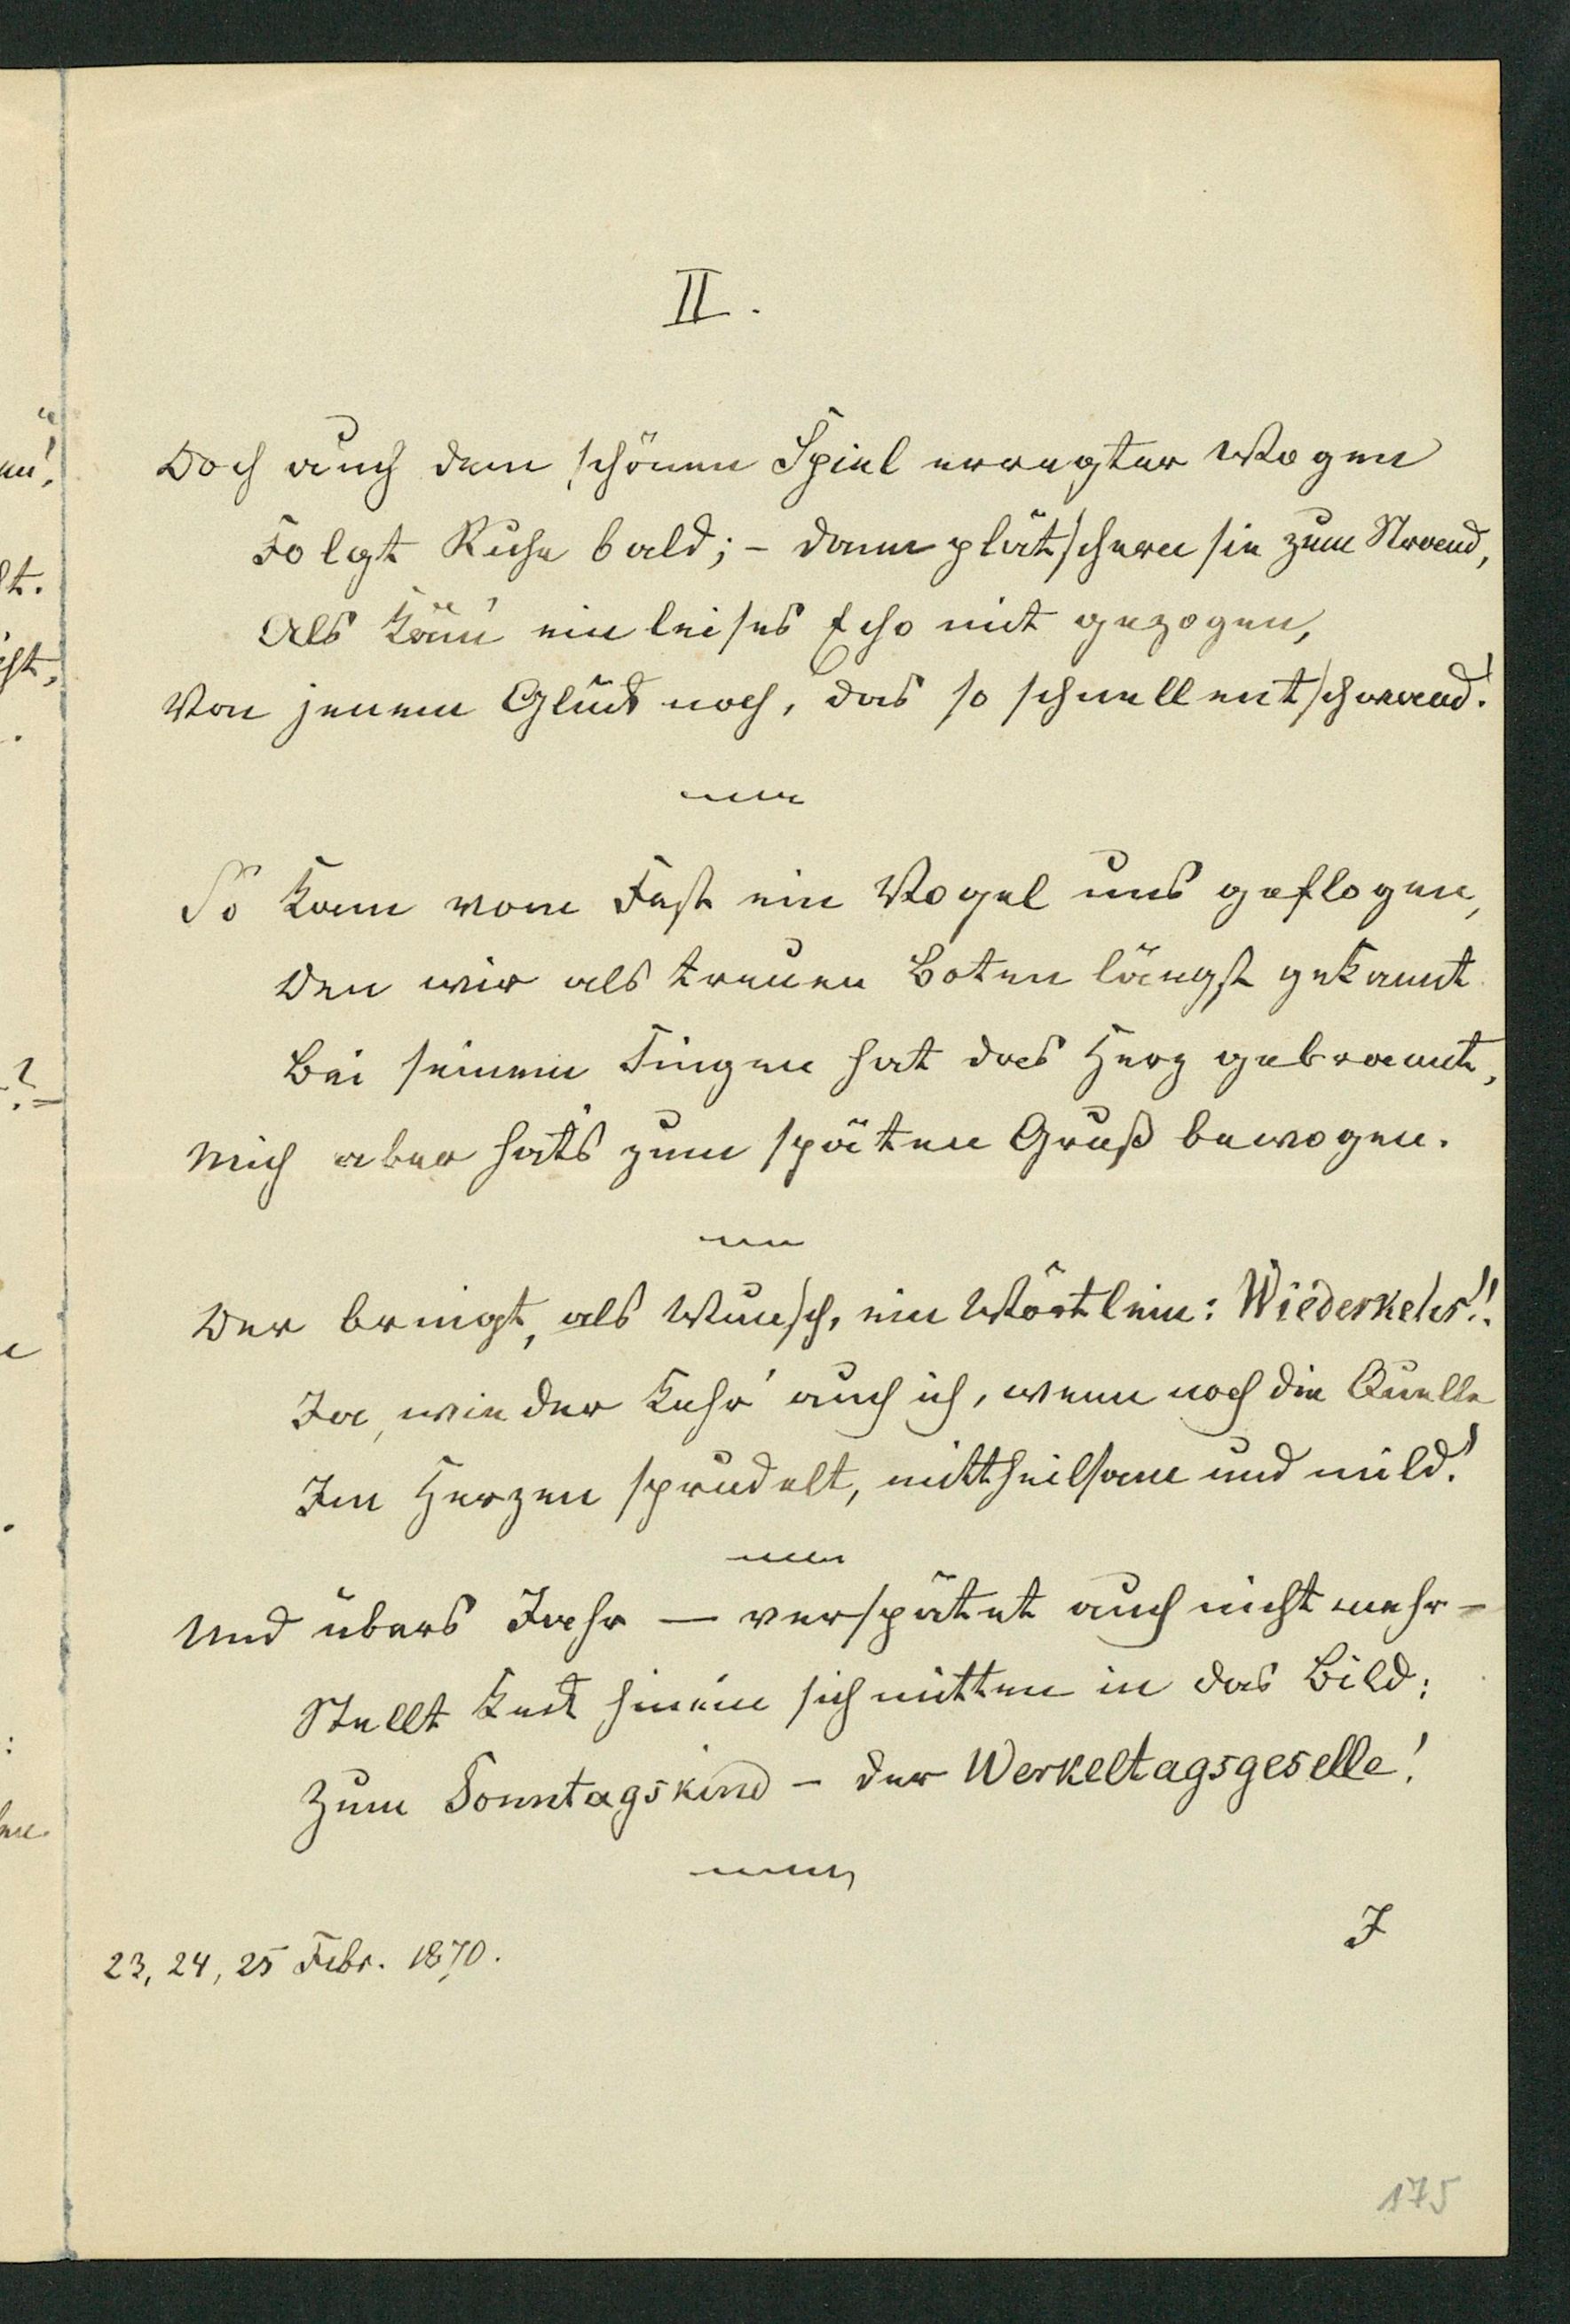 II.
Doch auch dem schönen Spiel erregter Wogen
Folgt Ruhe bald; – dann plätschern sie zum Strand,
Als käm' ein leises Echo mit gezogen,
Von jenem Glück noch, das so schnell entschwand!
So kam vom Fest ein Vogel uns geflogen,
Den wir als treuen Boten längst gekannt
Bei seinem Singen hat das Herz gebrannt,
Mich aber hat's zum späten Gruß bewogen.
Der bringt, als Wunsch, ein Wörtlein: Wiederkehr!!
Ja, wieder kehr' auch ich, wenn noch die Quelle
Im Herzen sprudelt, mittheilsam und mild!
Und übers Jahr — verspätet auch nicht mehr –
Stellt keck hinein sich mitten in das Bild:
Zum Sonntagskind – der Werkeltagsgeselle!
J
23, 24, 25 Febr. 1870.
175